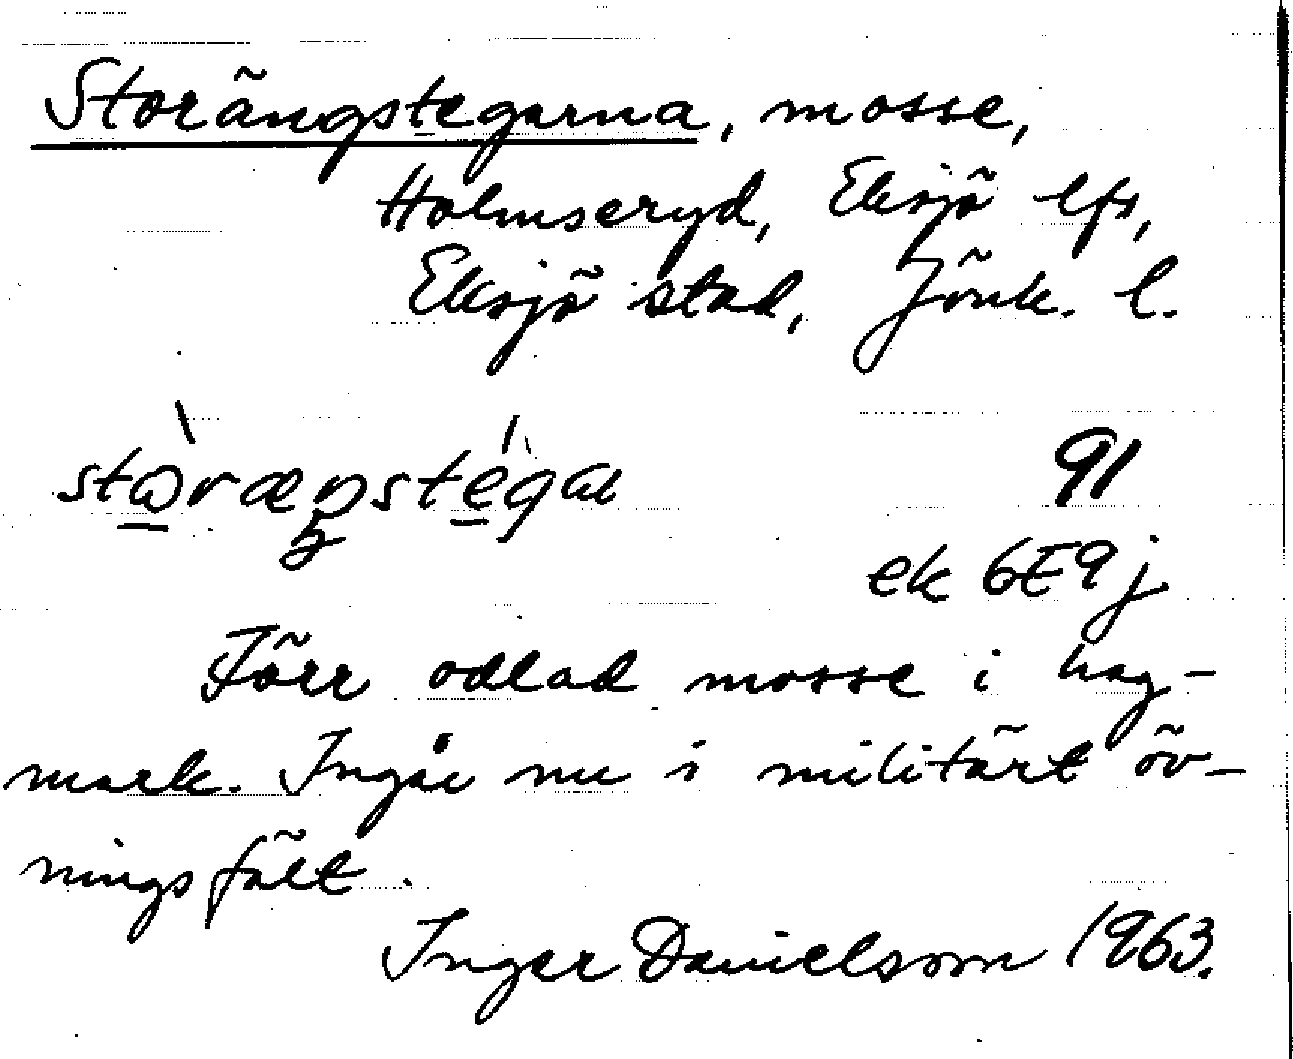 Storängstegarna, mosse,
Holmseryd, Eksjö lfs,
Eksjö stad, Jönk. l.
91
ek 6E9j
Förr odlad mosse i hag-
mark. Ingår nu i militärt öv-
ningsfält.
Inger Danielsson 1963.